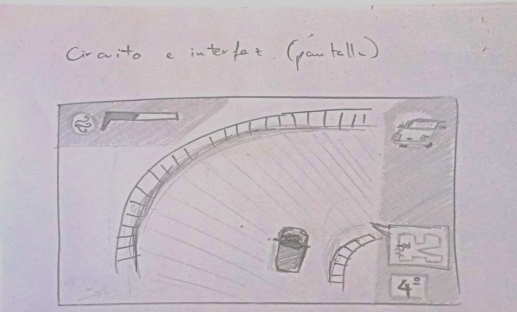 Circuito e interfaz (pantalla)
4º